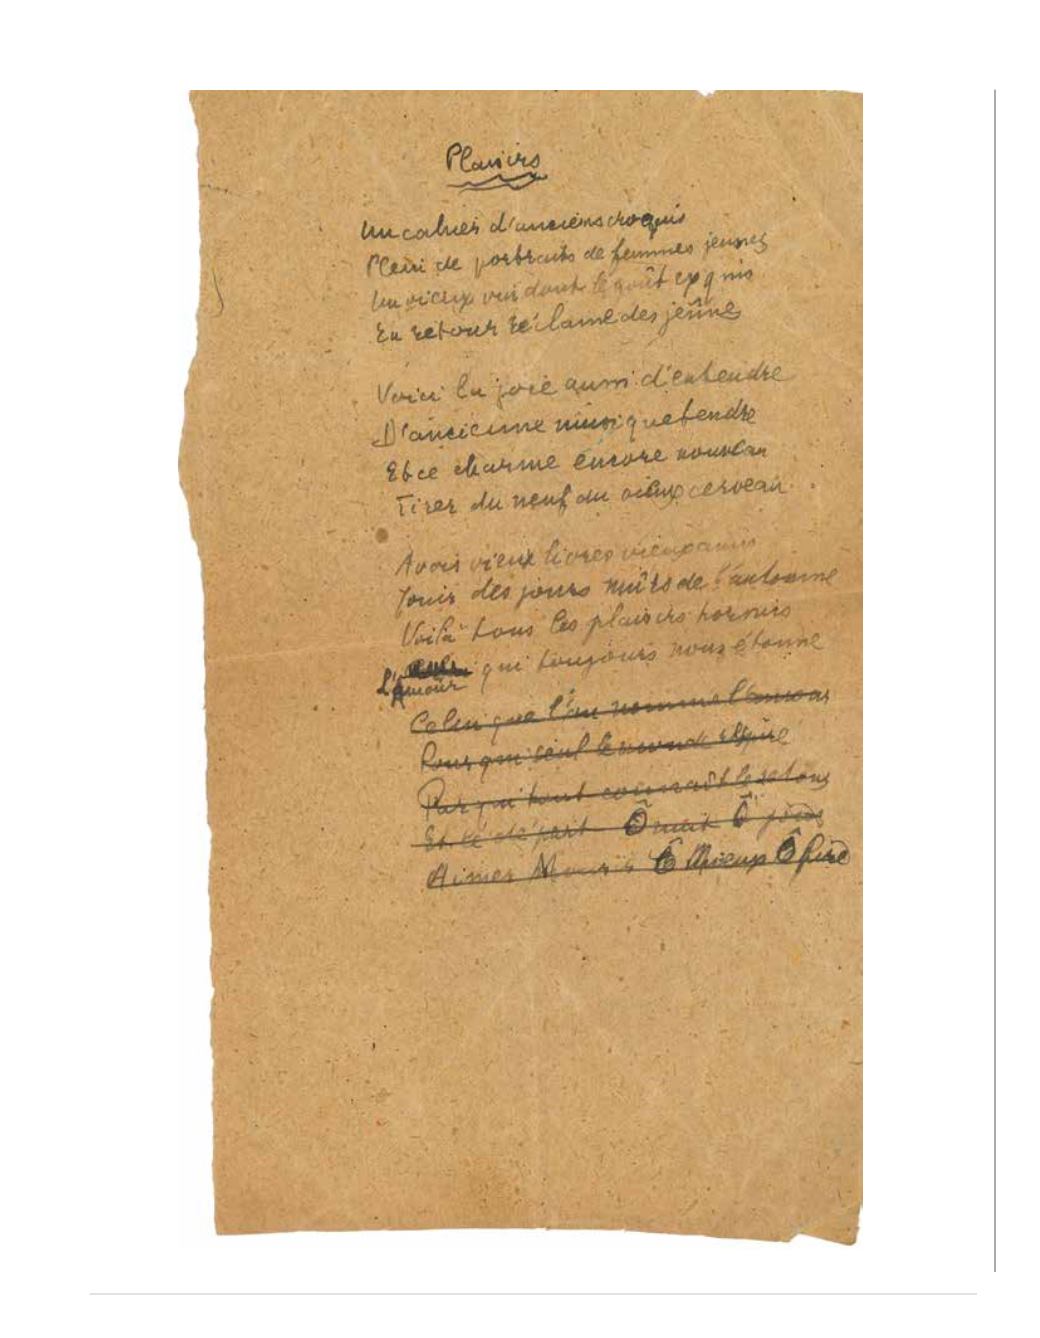 Plaisirs
Un cahier d'anciens croquis
Plein de portraits de femmes jeunes
Un vieux vin dont le goût exquis
En retour réclame des jeûnes
Voici la joie aussi d'entendre
D'ancienne musique tendre
Et ce charme encore nouveau
Tirer du neuf du vieux cerveau
Avoir vieux livres vieux amis
Jouir des jours mûrs de l'automne
Voilà tous les plaisirs hormis
L'Amour qui toujours nous étonne
Celui que l'on nomme l'amour
Pour qui seul le monde respire
Par qui tout connaît le retour
Et le départ Ô nuit Ô jour
Aimer Mourir Ô Mieux Ô Pire